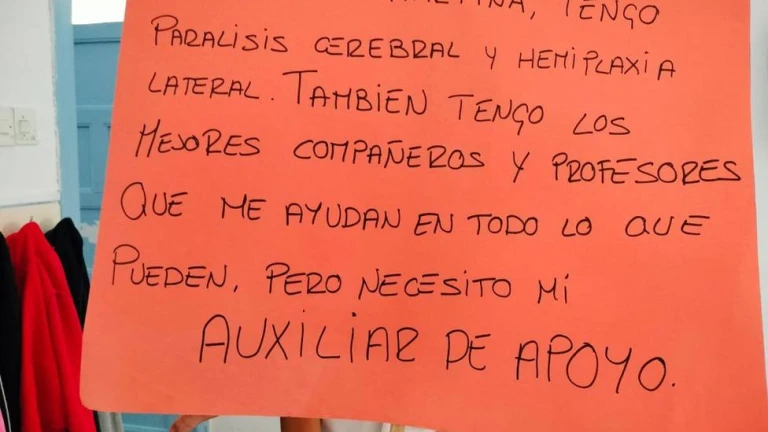 TENGO
PARALISIS CEREBRAL Y HEMIPLAXIA
LATERAL. TAMBIEN TENGO LOS
MEJORES COMPAÑEROS Y PROFESORES
QUE ME AYUDAN EN TODO LO QUE
PUEDEN, PERO NECESITO MI
AUXILIAR DE APOYO.